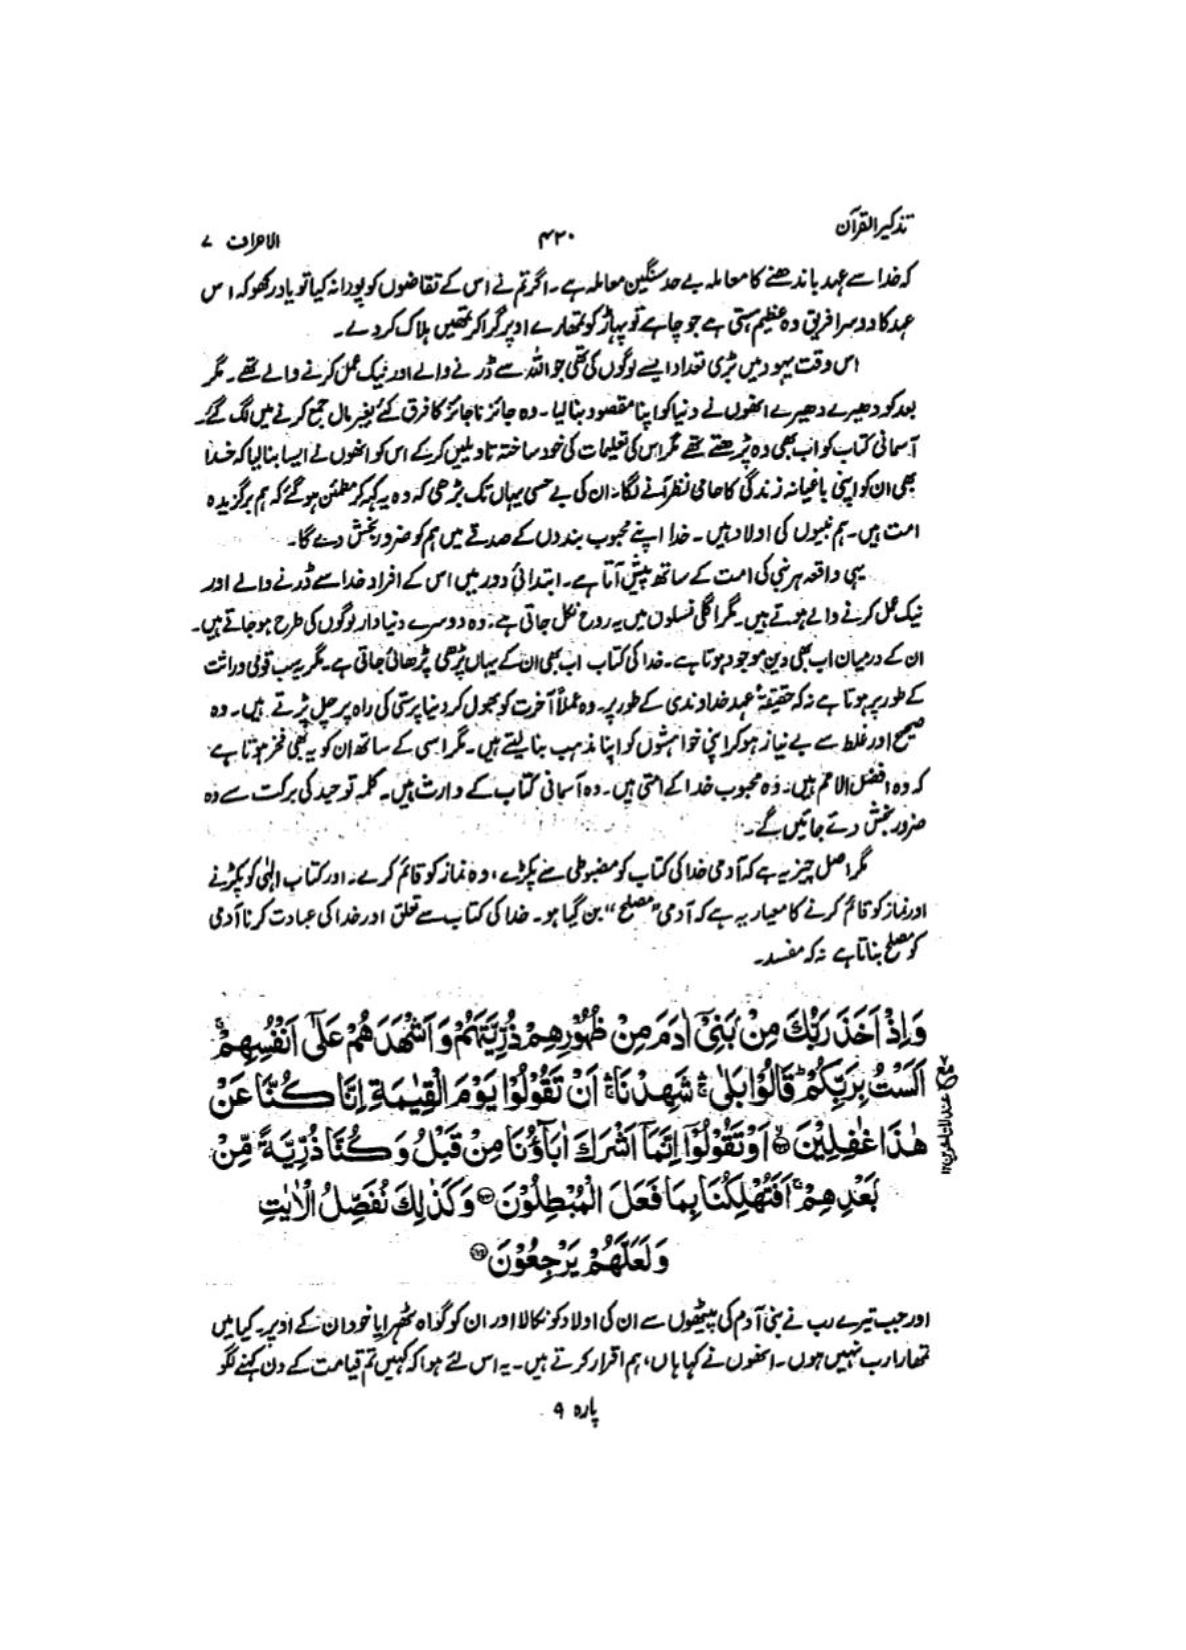 تذکیر القرآن ۴۲۰ الاعراف ۷
کہ خدا سے عہد باندھنے کا معاملہ بے حد سنگین معاملہ ہے۔ اگر تم نے اس کے تقاضوں کو پورا نہ کیا تو یاد رکھو کہ اس
عہد کا دوسرا فریق وہ عظیم ہستی ہے جو چاہے تو پہاڑ کو تمھارے اوپر گرا کر تمھیں ہلاک کر دے۔
اس وقت یہود میں بڑی تعداد ایسے لوگوں کی تھی جو اللہ سے ڈرنے والے اور نیک عمل کرنے والے تھے۔ مگر
بعد کو دھیرے دھیرے انھوں نے دنیا کو اپنا مقصود بنا لیا۔ وہ جائز ناجائز کا فرق کئے بغیر مال جمع کرنے میں لگ گئے۔
آسمانی کتاب کو اب بھی وہ پڑھتے تھے مگر اس کی تعلیمات کی خود ساختہ تاویلیں کر کے اس کو انھوں نے ایسا بنا لیا کہ خدا
بھی ان کو اپنی باغیانہ زندگی کا حامی نظر آنے لگا۔ ان کی بے حسی یہاں تک بڑھی کہ وہ یہ کہہ کر مطمئن ہو گئے کہ ہم برگزیدہ
امت ہیں۔ ہم نبیوں کی اولاد ہیں۔ خدا اپنے محبوب بندوں کے صدقے میں ہم کو ضرور بخش دے گا۔
یہی واقعہ ہر نبی کی امت کے ساتھ پیش آتا ہے۔ ابتدائی دور میں اس کے افراد خدا سے ڈرنے والے اور
نیک عمل کرنے والے ہوتے ہیں۔ مگر اگلی نسلوں میں یہ روح نکل جاتی ہے۔ وہ دوسرے دنیا دار لوگوں کی طرح ہو جاتے ہیں۔
ان کے درمیان اب بھی دین موجود ہوتا ہے۔ خدا کی کتاب اب بھی ان کے یہاں پڑھی پڑھائی جاتی ہے۔ مگر یہ سب قومی وراثت
کے طور پر ہوتا ہے نہ کہ حقیقۃً عہد خداوندی کے طور پر۔ وہ عملاً آخرت کو بھول کر دنیا پرستی کی راہ پر چل پڑتے ہیں۔ وہ
صحیح اور غلط سے بے نیاز ہو کر اپنی خواہشوں کو اپنا مذہب بنا لیتے ہیں۔ مگر اسی کے ساتھ ان کو یہ بھی فخر ہوتا ہے
کہ وہ افضل الامم ہیں۔ وہ محبوب خدا کے امتی ہیں۔ وہ آسمانی کتاب کے وارث ہیں۔ کلمہ توحید کی برکت سے وہ
ضرور بخش دئے جائیں گے۔
مگر اصل چیز یہ ہے کہ آدمی خدا کی کتاب کو مضبوطی سے پکڑے، وہ نماز کو قائم کرے۔ اور کتاب الٰہی کو پکڑنے
اور نماز کو قائم کرنے کا معیار یہ ہے کہ آدمی "مصلح" بن گیا ہو۔ خدا کی کتاب سے تعلق اور خدا کی عبادت کرنا آدمی
کو مصلح بناتا ہے نہ کہ مفسد۔
وَاِذْ اَخَذَ رَبُّكَ مِنْۢ بَنِیْۤ اٰدَمَ مِنْ ظُهُوْرِهِمْ ذُرِّیَّتَهُمْ وَ اَشْهَدَهُمْ عَلٰۤی اَنْفُسِهِمْ ۚ
اَلَسْتُ بِرَبِّكُمْ ؕ قَالُوْا بَلٰی ۛۚ شَهِدْنَا ۛۚ اَنْ تَقُوْلُوْا یَوْمَ الْقِیٰمَةِ اِنَّا كُنَّا عَنْ
هٰذَا غٰفِلِیْنَ ۝ اَوْ تَقُوْلُوْۤا اِنَّمَاۤ اَشْرَكَ اٰبَآؤُنَا مِنْ قَبْلُ وَ كُنَّا ذُرِّیَّةً مِّنْۢ
بَعْدِهِمْ ۚ اَفَتُهْلِكُنَا بِمَا فَعَلَ الْمُبْطِلُوْنَ ۝ وَ كَذٰلِكَ نُفَصِّلُ الْاٰیٰتِ
وَلَعَلَّهُمْ یَرْجِعُوْنَ ۝
اور جب تیرے رب نے بنی آدم کی پیٹھوں سے ان کی اولاد کو نکالا اور ان کو گواہ ٹھہرایا خود ان کے اوپر۔ کیا میں
تمھارا رب نہیں ہوں۔ انھوں نے کہا ہاں، ہم اقرار کرتے ہیں۔ یہ اس لئے ہوا کہ کہیں تم قیامت کے دن کہنے لگو
پارہ ۹